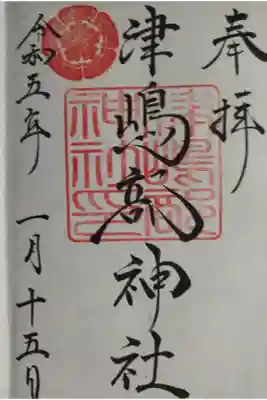 奉拝
津嶋部神社
令和五年 一月十五日